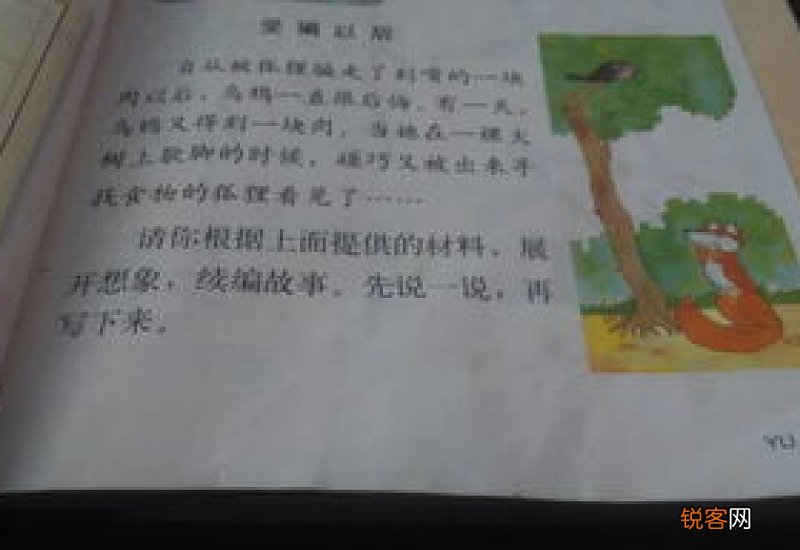 受骗以后
自从被狐狸骗走了到嘴的一块
肉以后，乌鸦一直很后悔。有一天，
乌鸦又得到一块肉。当她在一棵大
树上歇脚的时候，碰巧又被出来寻
找食物的狐狸看见了……
请你根据上面提供的材料，展
开想象，续编故事。先说一说，再
写下来。
YU
锐客网